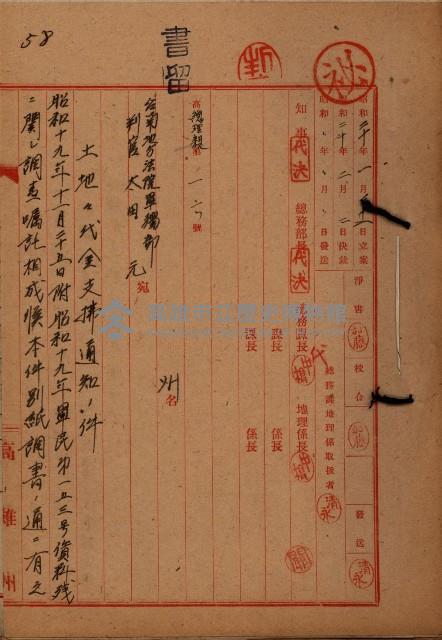 58
書留
昭和二十年一月三十一日立案
昭和二十年二月二日決裁
昭和 年 月 日發送
淨書
校合
發送
總務課地理係取扱者
清永
知事
代決
總務部長
代決
總務課長
代
地理係長
課長
係長
課長
係長
高總理親第一二號
州名
台南地方法院單獨部
判官 太田 元 宛
土地々代金支拂通知ノ件
昭和十九年十一月二十五日附昭和十九年單民第一五三号資料残
ニ関シ調査囑託相成候本件別紙調書ノ通ニ有之
高雄州
高雄市立歷史博物館